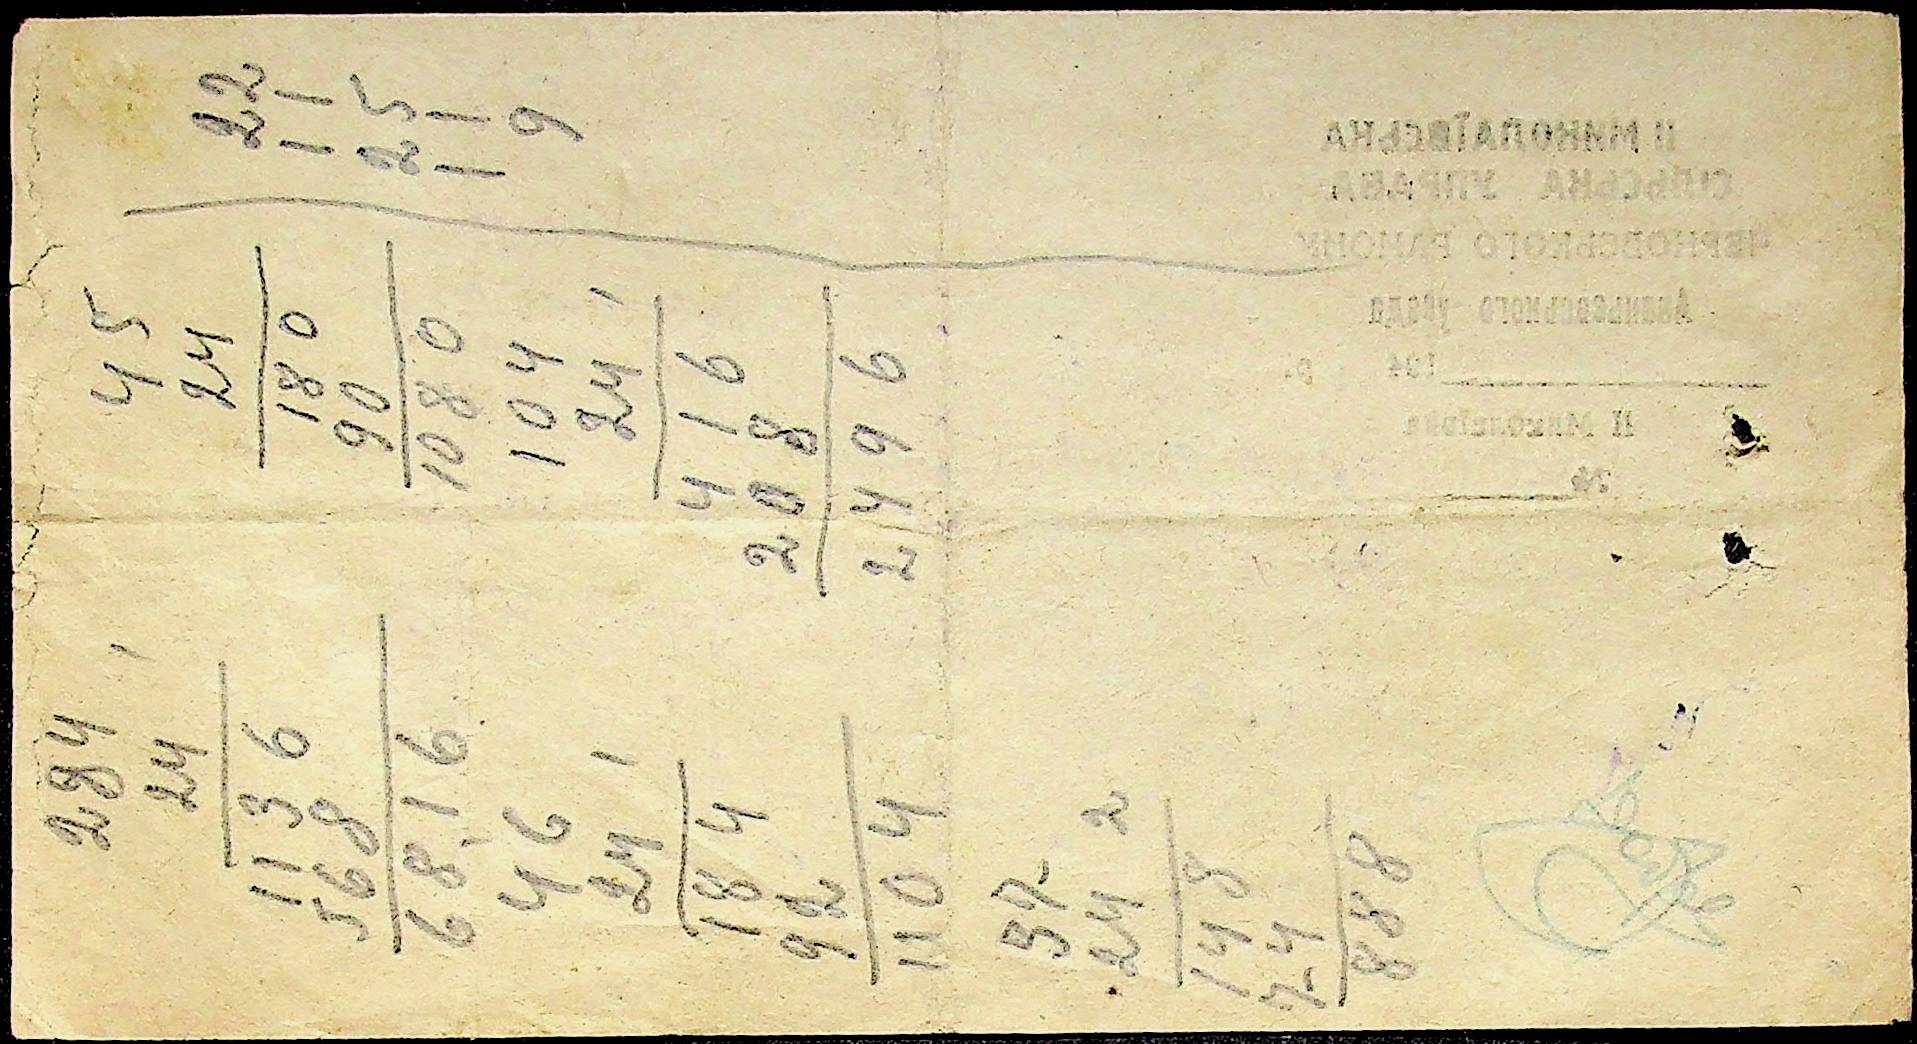 284
24 1
1136
568
6816
46
24 1
184
92
1104
37
24 2
148
74
888
45
24
180
90
1080
104
24 1
416
208
2496
22
11
25
11
9
II МИКОЛАЇВСЬКА
СІЛЬСЬКА УПРАВА
ЧЕРНОВСЬКОГО РАЙОНУ
194 р.
II Миколаївка
№